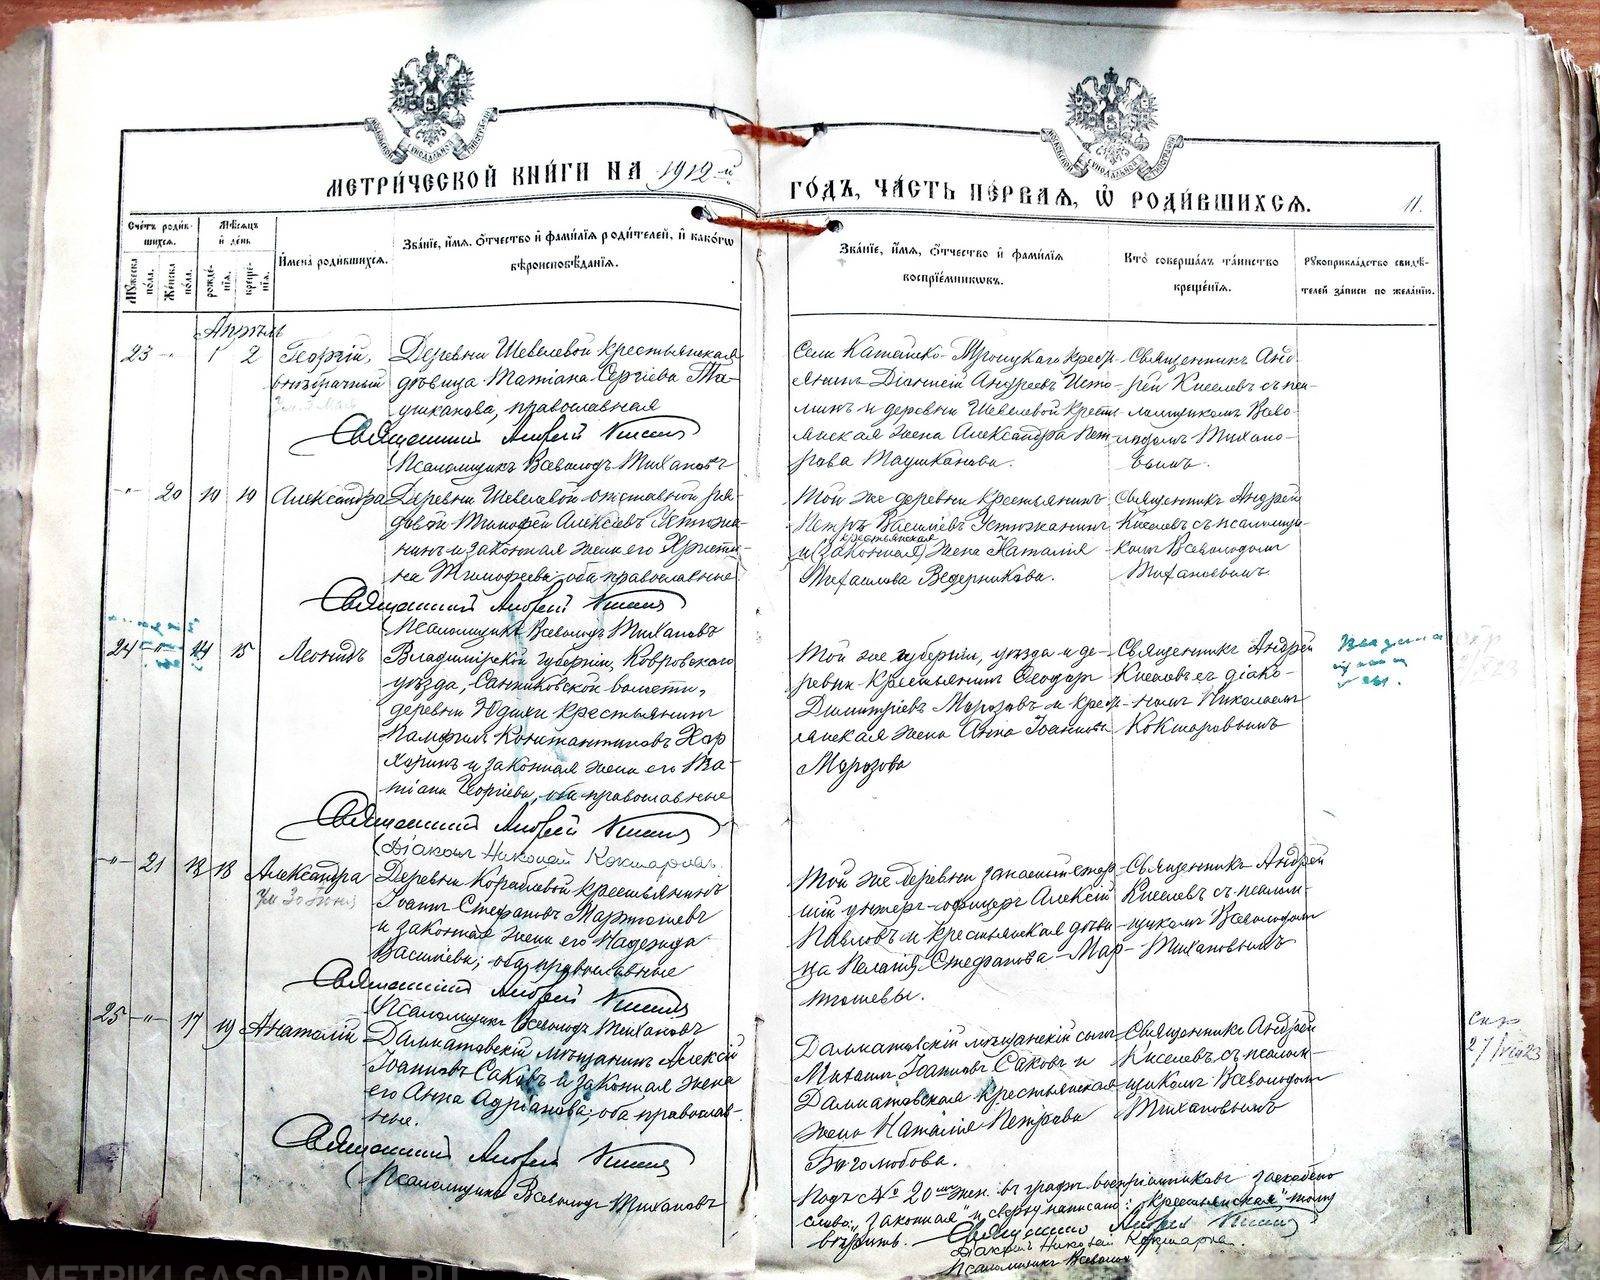 МЕТРИ́ЧЕСКОЙ КНИ́ГИ НА 1912-й
ГО́ДЪ, ЧА́СТЬ ПЕ́РВАЯ, Ѡ РОДИ́ВШИХСЯ.
11.
Сче́тъ роди́вшихся.
Му́жеска по́ла.
Же́нска по́ла.
Мѣ́сяцъ и҆ де́нь
рожде́нїя.
креще́нїя.
И҆мена̀ роди́вшихся.
Зва́нїе, и҆́мя, ѻ҆́тчество и҆ фами́лїя роди́телей, и҆ како́гѡ
вѣроисповѣ́данїя.
Зва́нїе, и҆́мя, ѻ҆́тчество и҆ фами́лїя
воспрїе́мникѡвъ.
Кто̀ соверша́лъ та́инство
креще́нїя.
Рꙋкоприкла́дство свидѣ́-
телей за́писи по жела́нїю.
Апрѣль
23 -"- 1 2 Георгій,
внѣбрачный
Деревни Шевелевой крестьянская
дѣвица Татіана Сергіева Та-
ушканова, православная
Священникъ Андрей Киселевъ
Псаломщикъ Всеволодъ Тихановъ
Села Катайско-Троицкаго крест-
янинъ Діонисій Андреевъ Исто-
минъ и деревни Шевелевой крестьи-
янская жена Александра Пет-
рова Таушканова.
Священникъ Анд-
рей Киселевъ съ пса-
ломщикомъ Всево-
лодомъ Тихано-
вымъ.
-"- 20 10 10 Александра
Деревни Шевелевой отставной ря-
довой Тимофей Алексіевъ Устюжа-
нинъ и законная жена его Христи-
на Тимофеева, оба православные
Священникъ Андрей Киселевъ
Псаломщикъ Всеволодъ Тихановъ
Той же деревни крестьянинъ
Петръ Василіевъ Устюжанинъ
крестьянская
и (законная) жена Наталія
Михаилова Ведерникова.
Священникъ Андрей
Киселевъ съ псаломщи-
комъ Всеволодомъ
Тихановымъ
24 -"- 14 15 Леонидъ
Владимірской губерніи, Ковровскаго
уѣзда, Санниковской волости,
деревни Юдихи крестьянинъ
Памфилъ Константиновъ Хар
Харинъ и законная жена его Та-
тіана Георгіева, оба православные
Священникъ Андрей Киселевъ
Діаконъ Николай Кокшаровъ
Той же губерніи, уѣзда и де-
ревни крестьянинъ Ѳеодоръ
Димитріевъ Морозовъ и крест-
янская жена Анна Іоаннова
Морозова
Священникъ Андрей
Киселевъ съ діако-
номъ Николаемъ
Кокшаровымъ
-"- 21 18 18 Александра
Ум 30 Іюня
Деревни Кораблевой крестьянинъ
Іоаннъ Стефановъ Мартюшевъ
и законная жена его Надежда
Василіева; оба православные
Священникъ Андрей Киселевъ
Псаломщикъ Всеволодъ Тихановъ
Той же деревни запасный стар-
шій унтеръ-офицеръ Алексій
Павловъ и крестьянская дѣви-
ца Пелагія Стефанова Мар-
тюшевы.
Священникъ Андрей
Киселевъ съ псалом-
щикомъ Всеволодомъ
Тихановымъ
25 -"- 17 19 Анатолій
Далматовскій мѣщанинъ Алексій
Іоанновъ Саковъ и законная жена
его Анна Адріанова; оба православ-
ные.
Священникъ Андрей Киселевъ
Псаломщикъ Всеволодъ Тихановъ
Далматовскій мѣщанскій сынъ
Михаилъ Іоанновъ Саковъ и
Далматовская крестьянская
жена Наталія Петрова
Боголюбова.
Священникъ Андрей
Киселевъ съ псалом-
щикомъ Всеволодомъ
Тихановымъ
Подъ № 20 жен. въ графѣ воспріемниковъ заскоблено
слово: "законная" и сверху написано: "крестьянская", тому
вѣрить. Священникъ Андрей Киселевъ
Діаконъ Николай Кокшаровъ.
Псаломщикъ Всеволодъ
METRIKI.GASO-URAL.RU